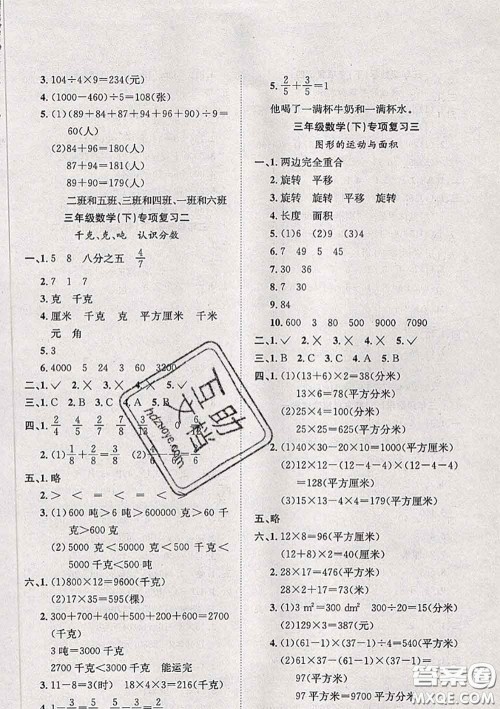 3. 104÷4×9=234(元)
4. (1000-460)÷5=108(元)
5. (1)89+84+87+94+90+96
=60
87+94=181
89+90=179
84+96=180
二班和五班、三班和四班、一班和六班
三年级数学(下)专项复习二
千克、克、吨 认识分数
一、1. 5 8 八分之五 4/7
2. 7 1 7
3. 克 千克
4. 厘米 千克 克 平方厘米 千克
元 角
5. 3
6. 4000 3 2 3000 60
二、1. ✓ 2. × 3. × 4. 5. ×
三、1. C 2. B 3. B 4. A
四、1. 2/4 4/4 2/6 7/8
2. (1) 1/8+2/8=3/8
五、1. 略
2. > < = <
3. (1)600 吨>6 吨>600000 克>60 千克>600 克
(2)5000 克<50000 克<500 千克<5000 千克<500 吨
六、1. (1)800×12=9600(千克)
(2)17×35=595(棵)
2. 300+700+400+500+100+700=2700(千克)
3 吨=3000 千克
2700 千克<3000 千克 能运完
3. 11-8=3(时) 18×4×3=216(千克)
5. 2/5+3/5=1
他喝了一满杯牛奶和一满杯水。
三年级数学(下)专项复习三
图形的运动与面积
一、1. 两边完全重合
2. 旋转 平移
3. 旋转 平移 旋转 旋转 平移
4. 长度 面积
5. 7 49 5 45
6. 7 30
7. 30 36
8. ②
9. 84
10. 9 600 80 5000 7090
二、1. ✓ 2. × 3. × 4. × 5. ✓
三、1. B 2. C 3. C 4. A 5. B
四、1. (1)(13+6)×2=38(分米)
13×6=78(平方分米)
(2)25×4=100(分米)
25×25=625(平方分米)
2. (1)40×30-20×10=1000(平方分米)
(2)12×12-(12-4)×(12-4-4)
=128(平方厘米)
3. (1)15×15-8×8÷2=193(平方厘米)
五、略
六、1. 12×8=96(平方厘米)
(12+8)×2=40(厘米)
2. 28×17=476(平方米)
28×2+17=73(米)
3. (1)3 m²=300 dm² 300>293
(2)129×3=387(元)
4. (1)(61-1)×(37-1)÷4=540(平方米)
(2)(61-1)+(37-1)+1=97(平方米)
97平方米=9700 平方分米
互助文档
hdzuoye.com
答案圈
MXQE.COM